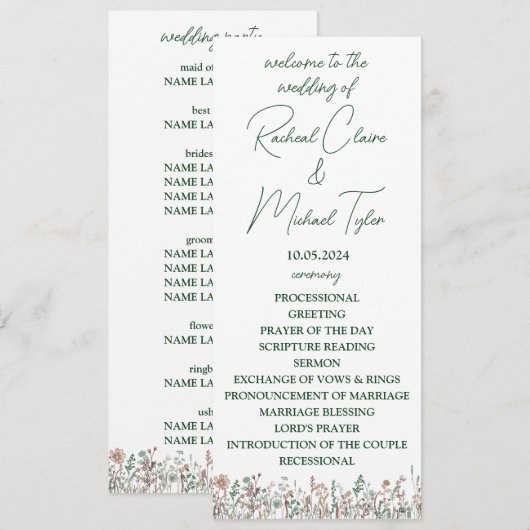 wedding party
maid of
NAME LA
best
NAME LA
brides
NAME LA
NAME LA
NAME LA
NAME LA
groom
NAME LA
NAME LA
NAME LA
NAME LA
flowe
NAME LA
ringb
NAME LA
ush
NAME LA
NAME LA
welcome to the
wedding of
Racheal Claire
&
Michael Tyler
10.05.2024
ceremony
PROCESSIONAL
GREETING
PRAYER OF THE DAY
SCRIPTURE READING
SERMON
EXCHANGE OF VOWS & RINGS
PRONOUNCEMENT OF MARRIAGE
MARRIAGE BLESSING
LORD'S PRAYER
INTRODUCTION OF THE COUPLE
RECESSIONAL